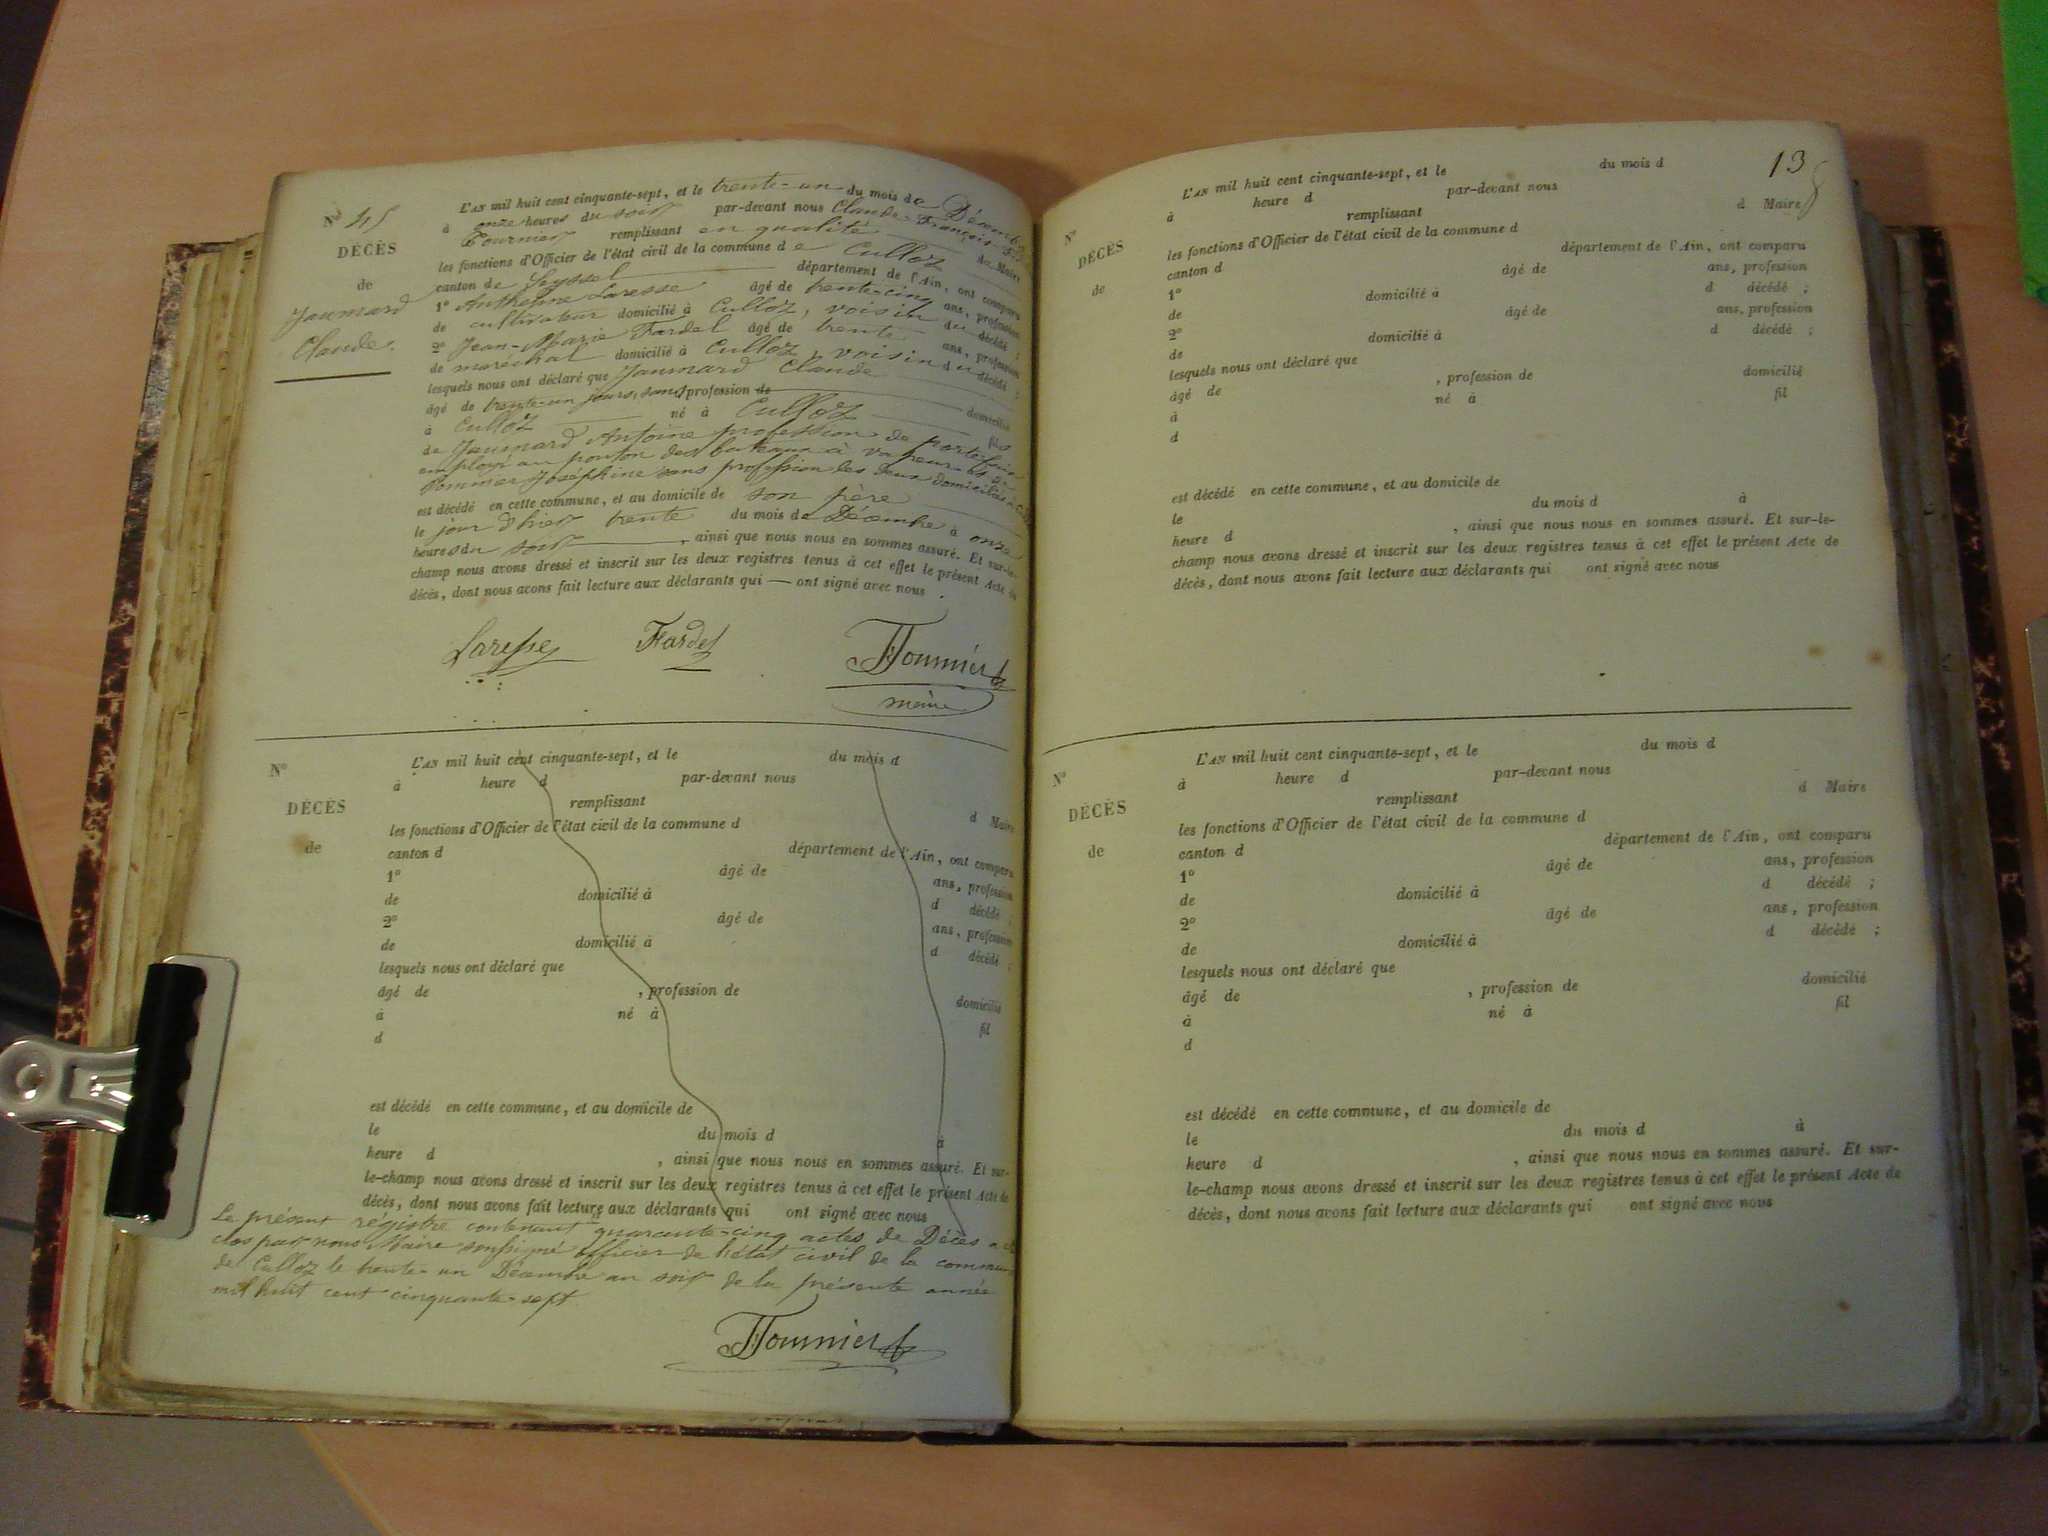 N° 45
DÉCÈS
de
Jaumard
Claude.
L'AN mil huit cent cinquante-sept, et le trente-un du mois de Décembre
à onze heures du soir par-devant nous Claude-François
Fournier remplissant en qualité de Maire
les fonctions d'Officier de l'état civil de la commune de Culloz
canton de Seyssel département de l'Ain, ont comparu
1° Anthelme Laresse âgé de trente-cinq ans, profession
de cultivateur domicilié à Culloz, voisin du décédé ;
2° Jean-Marie Fardel âgé de trente ans, profession
de maréchal domicilié à Culloz, voisin du décédé ;
lesquels nous ont déclaré que Jaumard Claude
âgé de trente-un jours, sans profession de domicilié
à Culloz né à Culloz fils
de Jaumard Antoine profession de portefaix
employé au ponton des bateaux à vapeur et de
Pommer Joséphine sans profession les deux domiciliés à
est décédé en cette commune, et au domicile de son père
le jour d'hier trente du mois de Décembre à onze
heures du soir , ainsi que nous nous en sommes assuré. Et sur-le-
champ nous avons dressé et inscrit sur les deux registres tenus à cet effet le présent Acte de
décès, dont nous avons fait lecture aux déclarants qui — ont signé avec nous .
Laresse Fardel Fournier
maire
N°
DÉCÈS
de
L'AN mil huit cent cinquante-sept, et le du mois d
à heure d par-devant nous
remplissant d Maire
les fonctions d'Officier de l'état civil de la commune d
canton d département de l'Ain, ont comparu
1° âgé de ans, profession
de domicilié à d décédé ;
2° âgé de ans, profession
de domicilié à d décédé ;
lesquels nous ont déclaré que
âgé de , profession de domicilié
à né à fil
d
est décédé en cette commune, et au domicile de
le du mois d à
heure d , ainsi que nous nous en sommes assuré. Et sur-
le-champ nous avons dressé et inscrit sur les deux registres tenus à cet effet le présent Acte de
décès, dont nous avons fait lecture aux déclarants qui ont signé avec nous
Le présent régistre contenant quarante-cinq actes de Décès a été
clos par nous Maire soussigné officier de l'état civil de la commune
de Culloz le trente-un Décembre au soir de la présente année
mil huit cent cinquante-sept.
Fournier
13
N°
DÉCÈS
de
L'AN mil huit cent cinquante-sept, et le du mois d
à heure d par-devant nous
remplissant d Maire
les fonctions d'Officier de l'état civil de la commune d
canton d département de l'Ain, ont comparu
1° âgé de ans, profession
de domicilié à d décédé ;
2° âgé de ans, profession
de domicilié à d décédé ;
lesquels nous ont déclaré que
âgé de , profession de domicilié
à né à fil
d
est décédé en cette commune, et au domicile de
le du mois d à
heure d , ainsi que nous nous en sommes assuré. Et sur-le-
champ nous avons dressé et inscrit sur les deux registres tenus à cet effet le présent Acte de
décès, dont nous avons fait lecture aux déclarants qui ont signé avec nous
N°
DÉCÈS
de
L'AN mil huit cent cinquante-sept, et le du mois d
à heure d par-devant nous
remplissant d Maire
les fonctions d'Officier de l'état civil de la commune d
canton d département de l'Ain, ont comparu
1° âgé de ans, profession
de domicilié à d décédé ;
2° âgé de ans, profession
de domicilié à d décédé ;
lesquels nous ont déclaré que
âgé de , profession de domicilié
à né à fil
d
est décédé en cette commune, et au domicile de
le du mois d à
heure d , ainsi que nous nous en sommes assuré. Et sur-
le-champ nous avons dressé et inscrit sur les deux registres tenus à cet effet le présent Acte de
décès, dont nous avons fait lecture aux déclarants qui ont signé avec nous